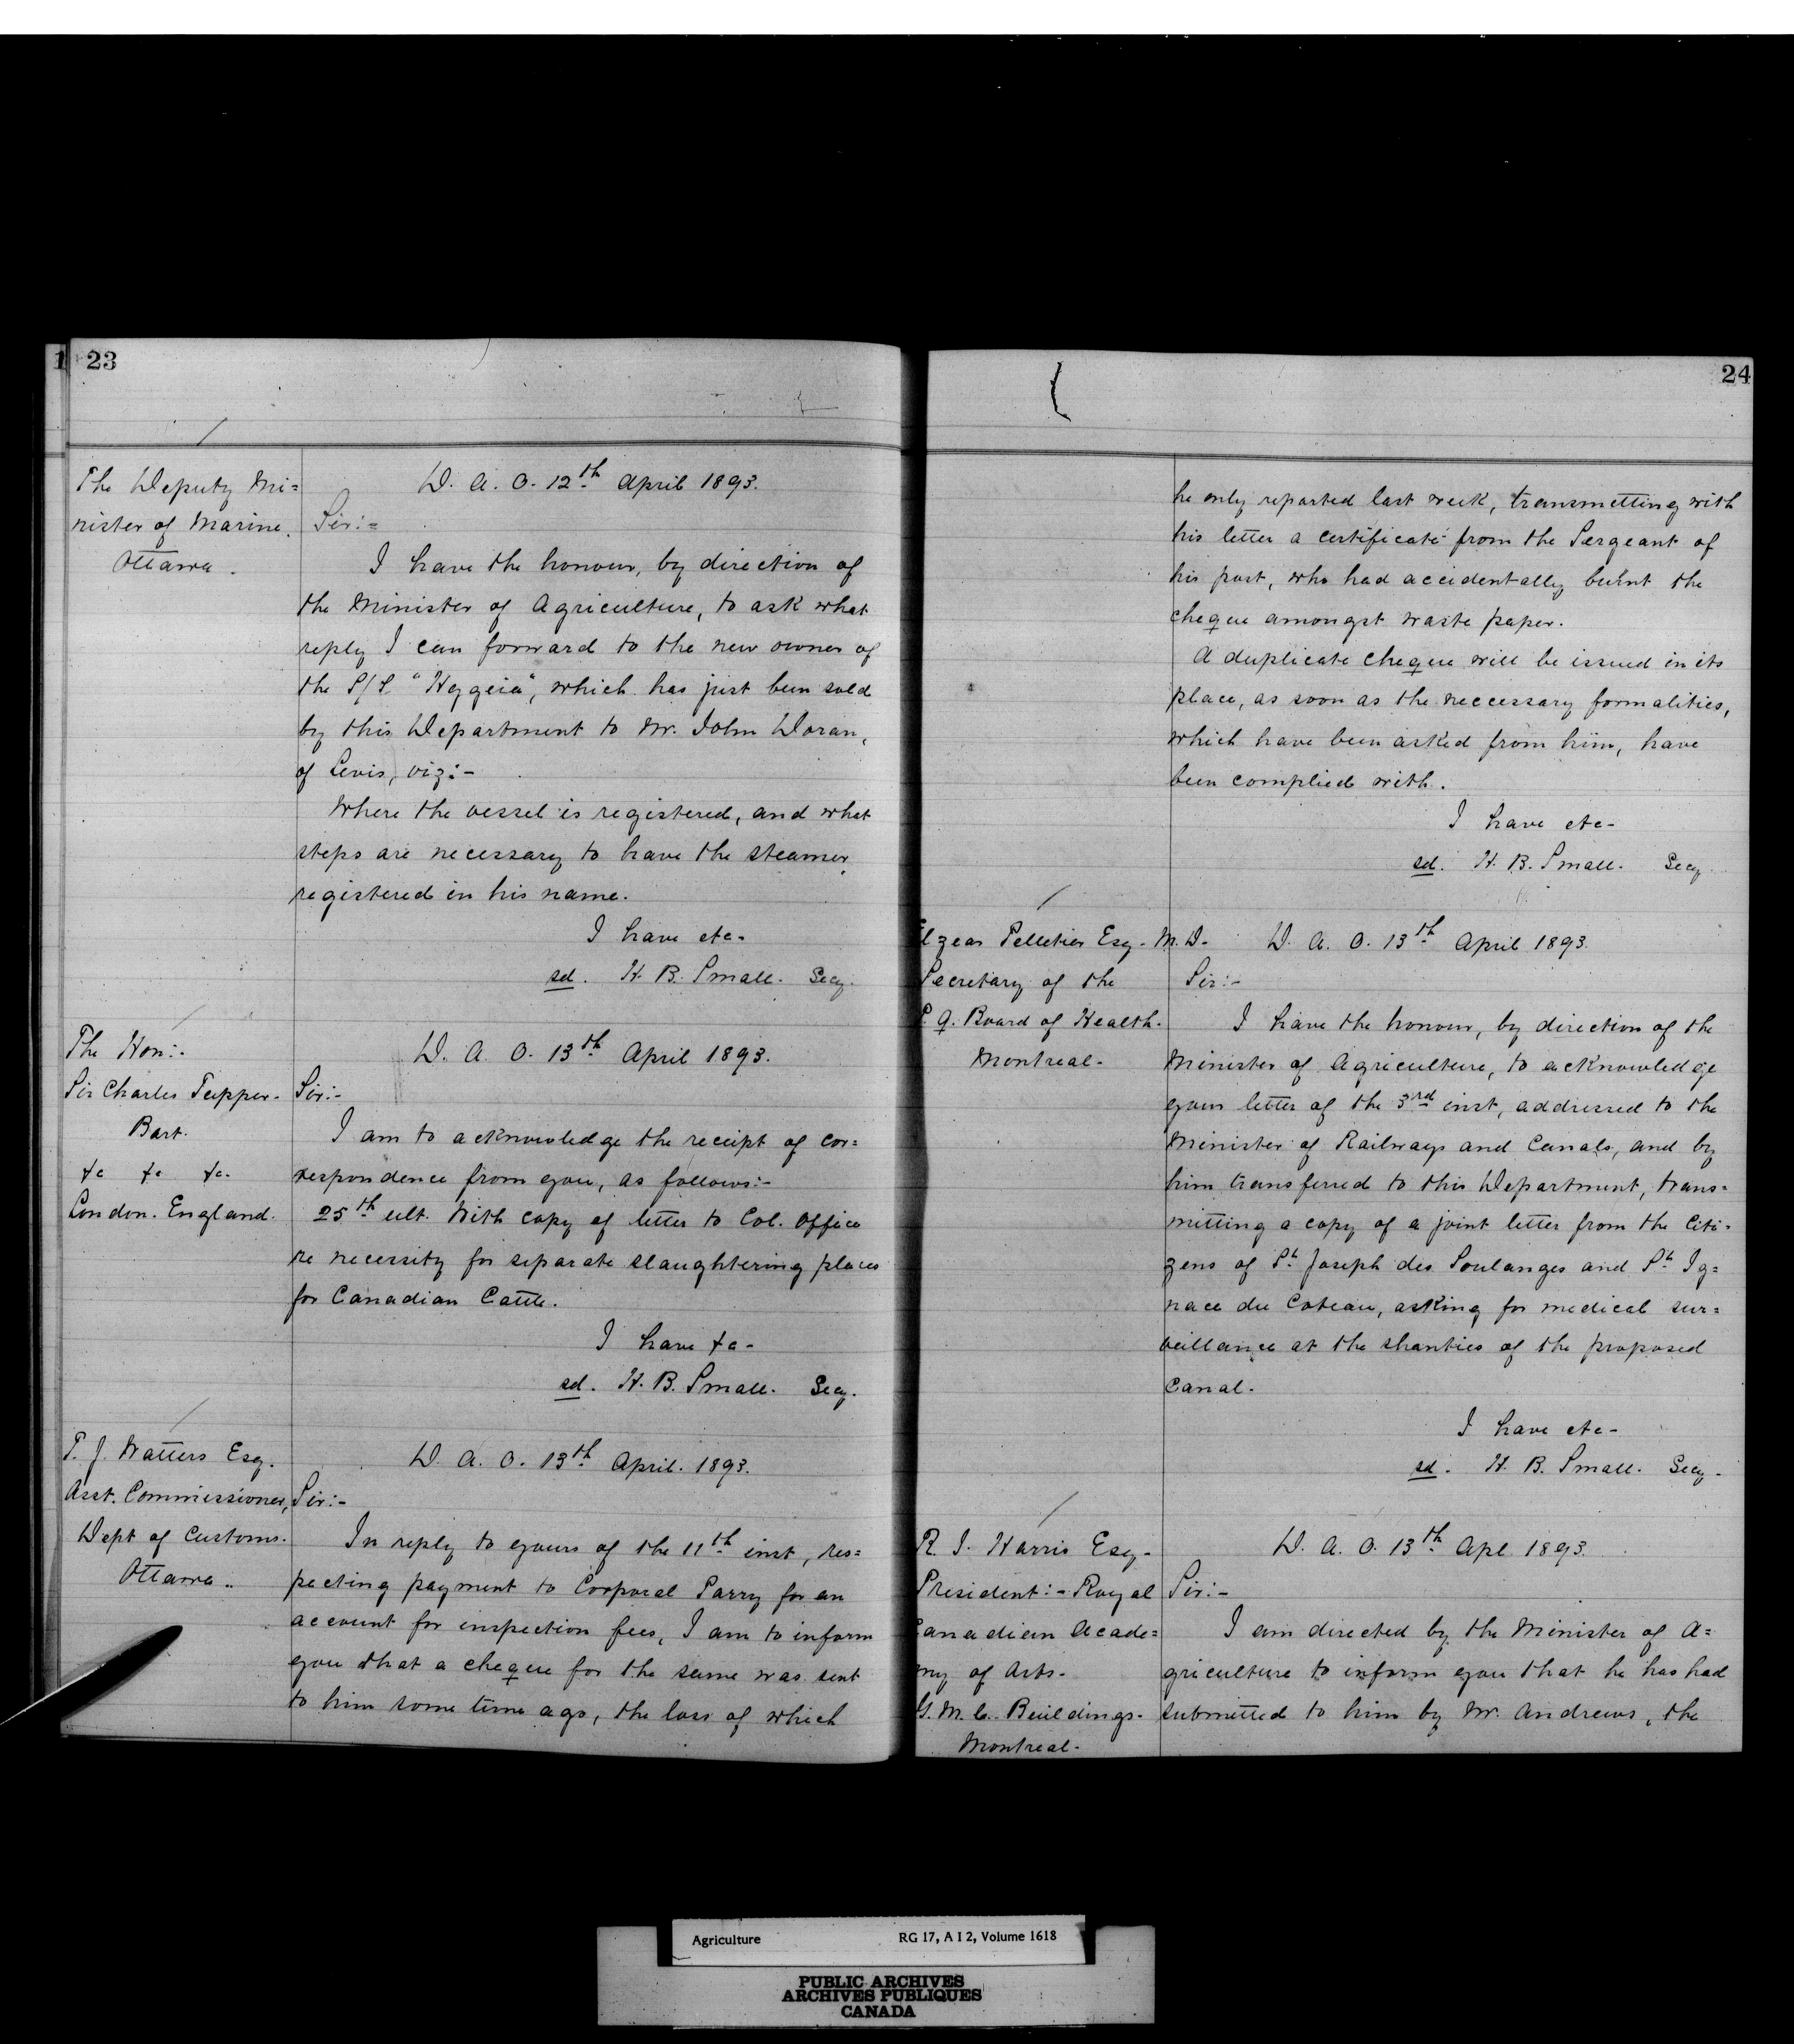 23
The Deputy Mi=
nister of Marine.
Ottawa.
D. A. O. 12th April 1893.
Sir:=
I have the honour, by direction of
the Minister of Agriculture, to ask what
reply I can forward to the new owner of
the S/S "Hygeia", which has just been sold
by this Department to Mr. John Doran,
of Levis, viz:-
Where the vessel is registered, and what
steps are necessary to have the steamer
registered in his name.
I have etc-
sd. H. B. Small. Secy.
The Hon:-
Sir Charles Tupper-
Bart.
&c &c &c-
London. England.
D. A. O. 13th April 1893.
Sir:-
I am to acknowledge the receipt of cor=
respondence from you, as follows:-
25th ult. With copy of letter to Col. Office
re necessity for separate slaughtering places
for Canadian Cattle.
I have &c-
sd. H. B. Small. Secy.
T. J. Watters Esq.
Asst. Commissioner,
Dept of Customs.
Ottawa..
D. A. O. 13th April. 1893.
Sir:-
In reply to yours of the 11th inst, res=
pecting payment to Corporal Parry for an
account for inspection fees, I am to inform
you that a cheque for the same was sent
to him some time ago, the loss of which
24
he only reported last week, transmitting with
his letter a certificate from the Sergeant of
his post, who had accidentally burnt the
cheque amongst waste paper.
A duplicate cheque will be issued in its
place, as soon as the neccessary formalities,
which have been asked from him, have
been complied with.
I have etc-
sd. H. B. Small. Secy
Elzear Pelletier Esq- M.D-
Secretary of the
P. Q. Board of Health.
Montreal-
D. A. O. 13th April 1893.
Sir:-
I have the honour, by direction of the
Minister of Agriculture, to acknowledge
your letter of the 3rd inst, addressed to the
Minister of Railways and Canals, and by
him transferred to this Department, trans-
mitting a copy of a joint letter from the Citi-
zens of St Joseph des Soulanges and St Ig=
nace du Coteau, asking for medical sur=
veillance at the shanties of the proposed
Canal.
I have etc-
sd. H. B. Small. Secy-
R. J. Harris Esq-
President:- Royal
Canadian Acade=
my of Arts-
Y. M. C. Buildings-
Montreal-
D. A. O. 13th Apl 1893.
Sir:-
I am directed by the Minister of A=
griculture to inform you that he has had
submitted to him by Mr. Andrews, the
Agriculture RG 17, A I 2, Volume 1618
PUBLIC ARCHIVES
ARCHIVES PUBLIQUES
CANADA